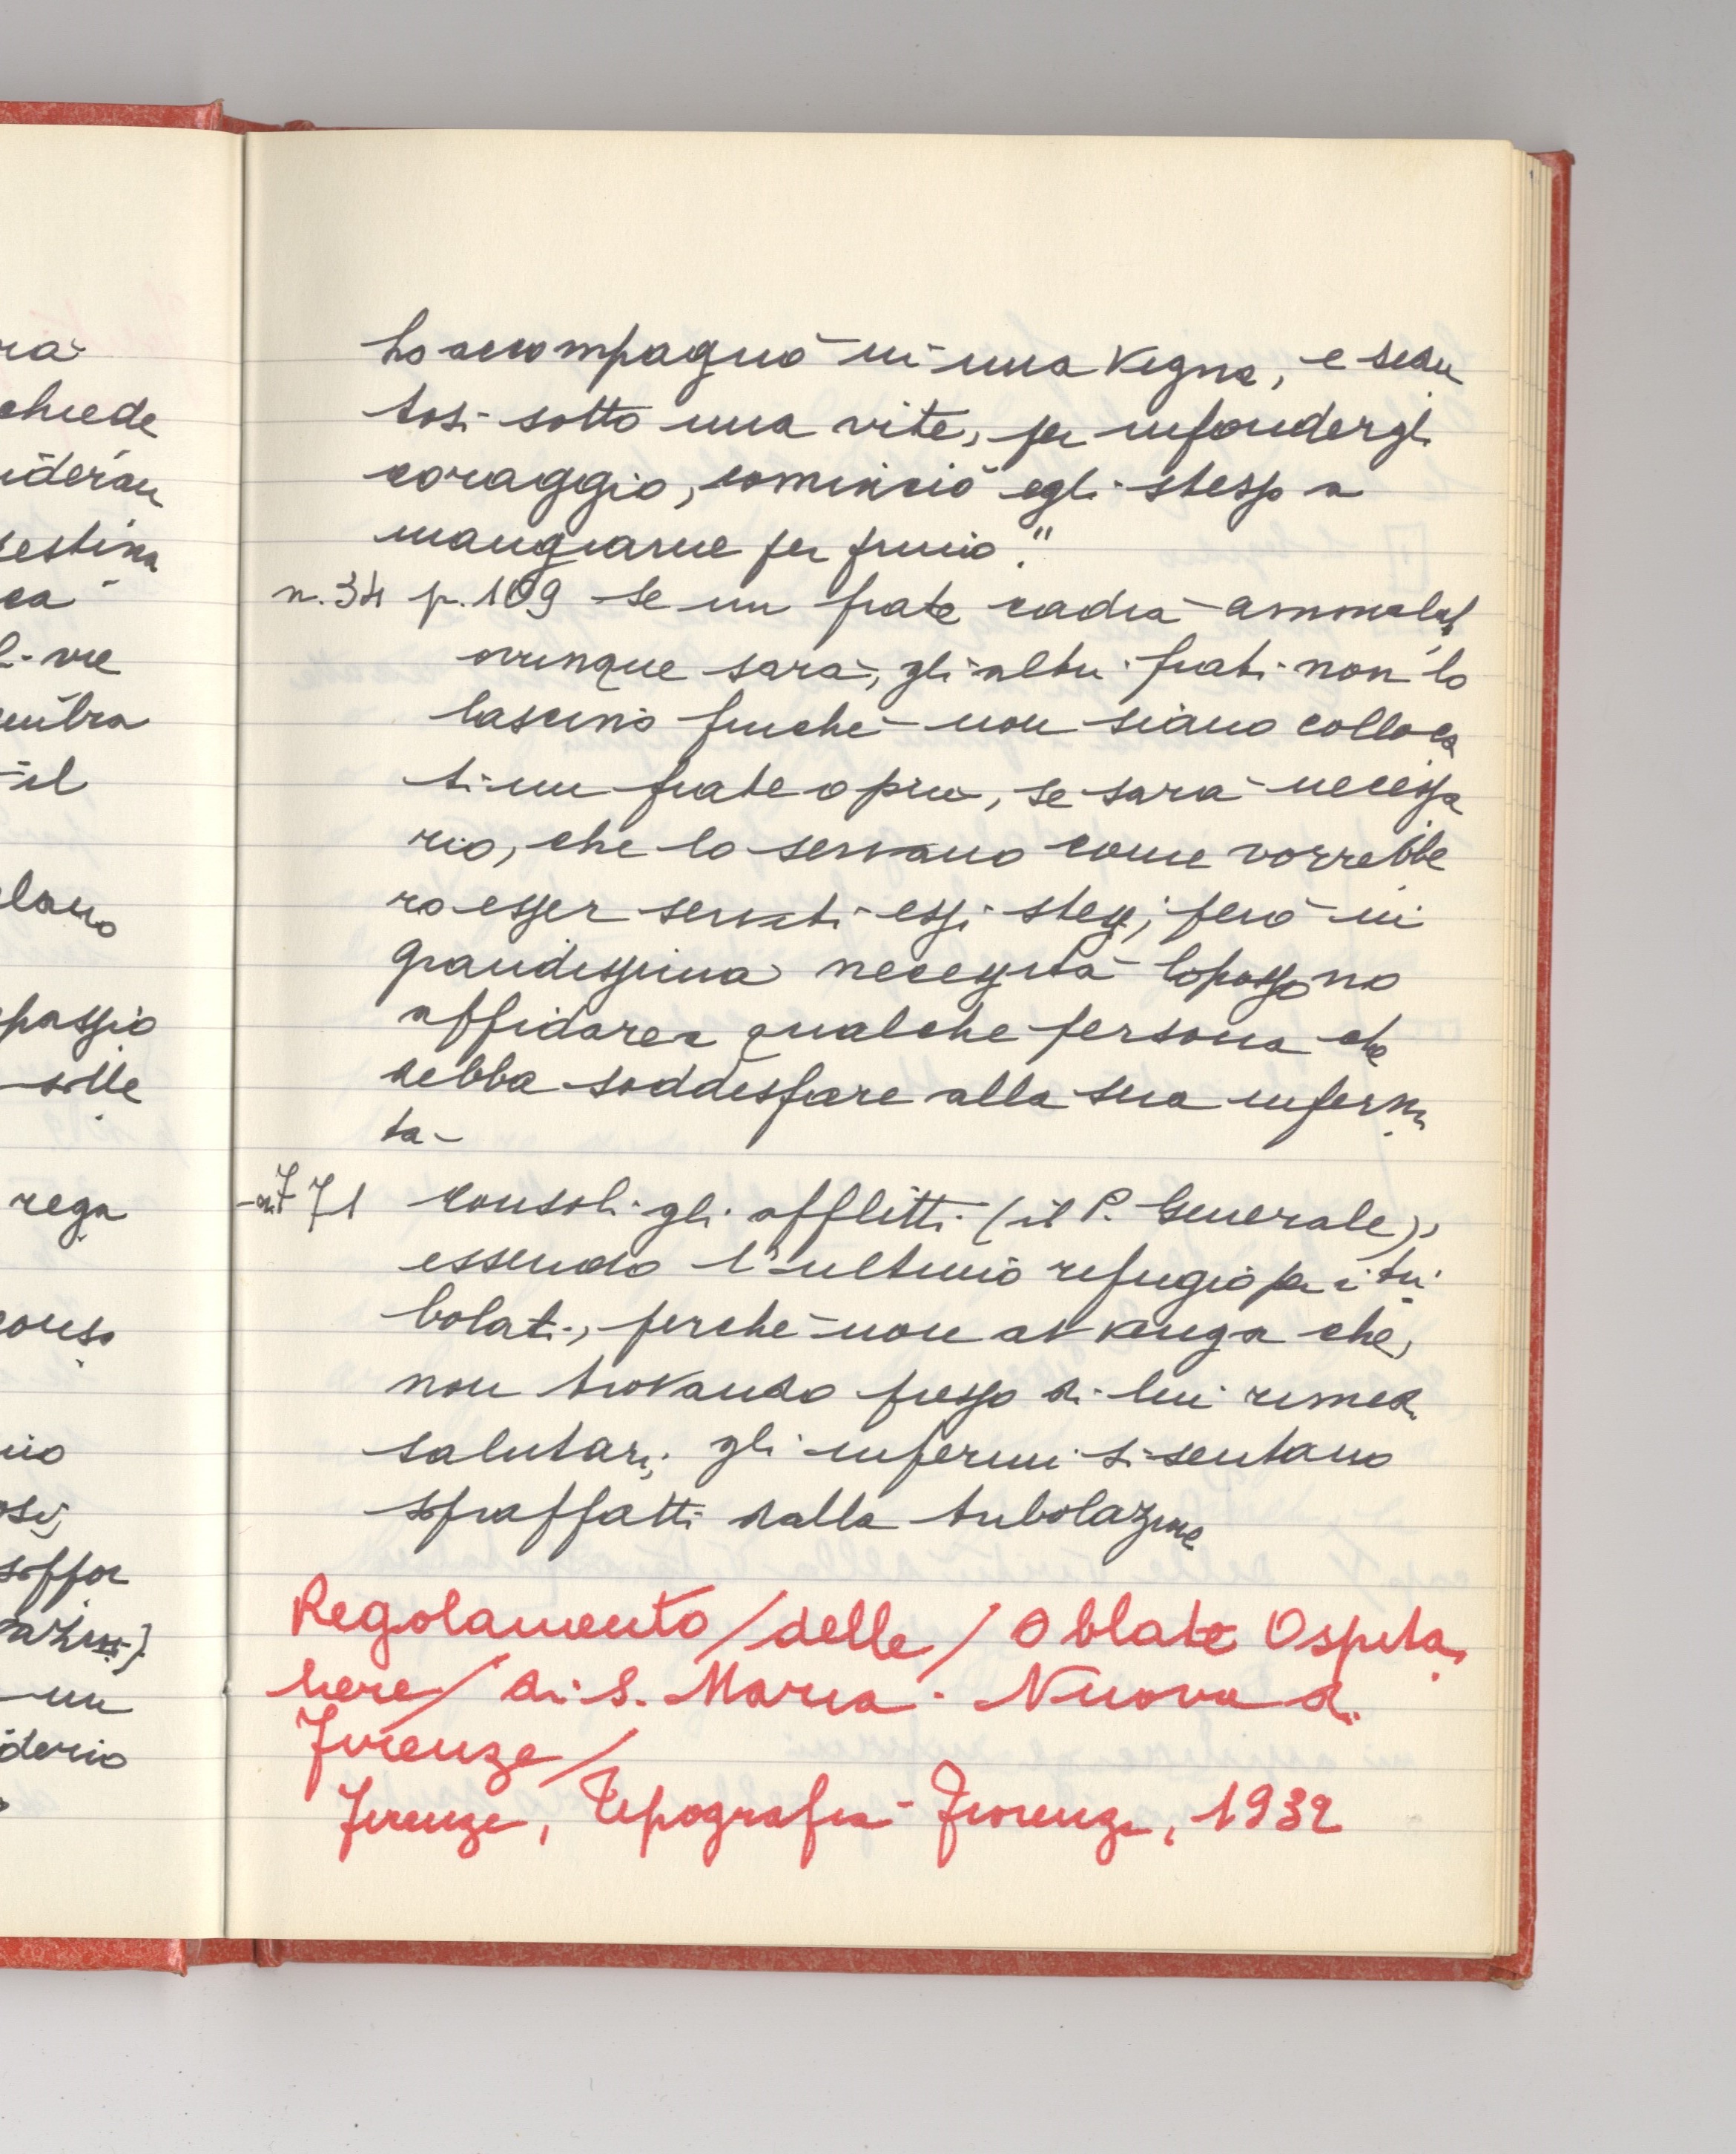 rà
chiede
ideran
estina
ca
l. vie
embra
il
lano
passio
solle
rega
conso
nio
osi,
soffor
un
iderio
Lo accompagnò in una vigna, e sedu
tosi sotto una vite, per infondergli
coraggio, cominciò egli stesso a
mangiarne per primo."
n. 34 p. 109 Se un frate cadrà ammalat
ovunque sarà, gli altri frati non lo
lascino finché non siano colloca
ti un frate o più, se sarà necessa
rio, che lo servano come vorrebbe
ro esser serviti essi stessi; però in
grandissima necessità lo possono
affidare a qualche persona che
debba soddisfare alla sua infermi
tà-
ant 71 Consoli gli afflitti (il P. Generale),
essendo l'ultimo refugio per i tri
bolati, perché non avvenga che,
non trovando presso di lui rimedi
salutari, gli infermi si sentano
sopraffatti dalla tribolazione
Regolamento / delle / Oblate Ospita
liere / di S. Maria Nuova di
Firenze /
Firenze, Tipografia Fiorenza, 1932